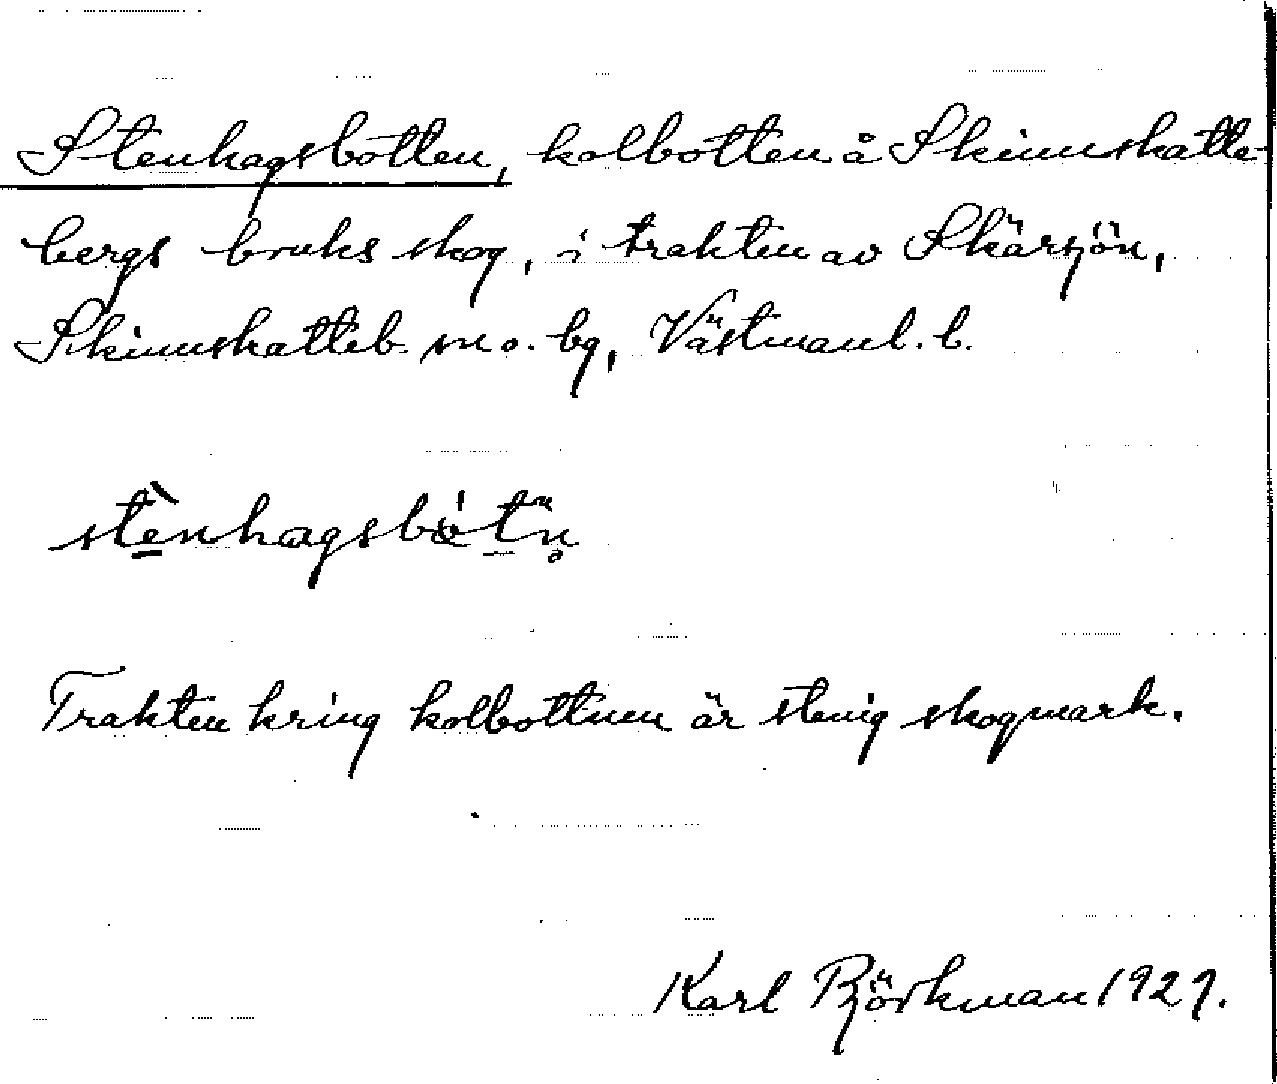 Stenhagsbotten, kolbotten å Skinnskatte-
bergs bruks skog, i trakten av Skärsjön,
Skinnskatteb. sn o. bg, Västmanl. l.
stènhagsbót̄n̥
Trakten kring kolbottnen är stenig skogmark.
Karl Björkman 1927.